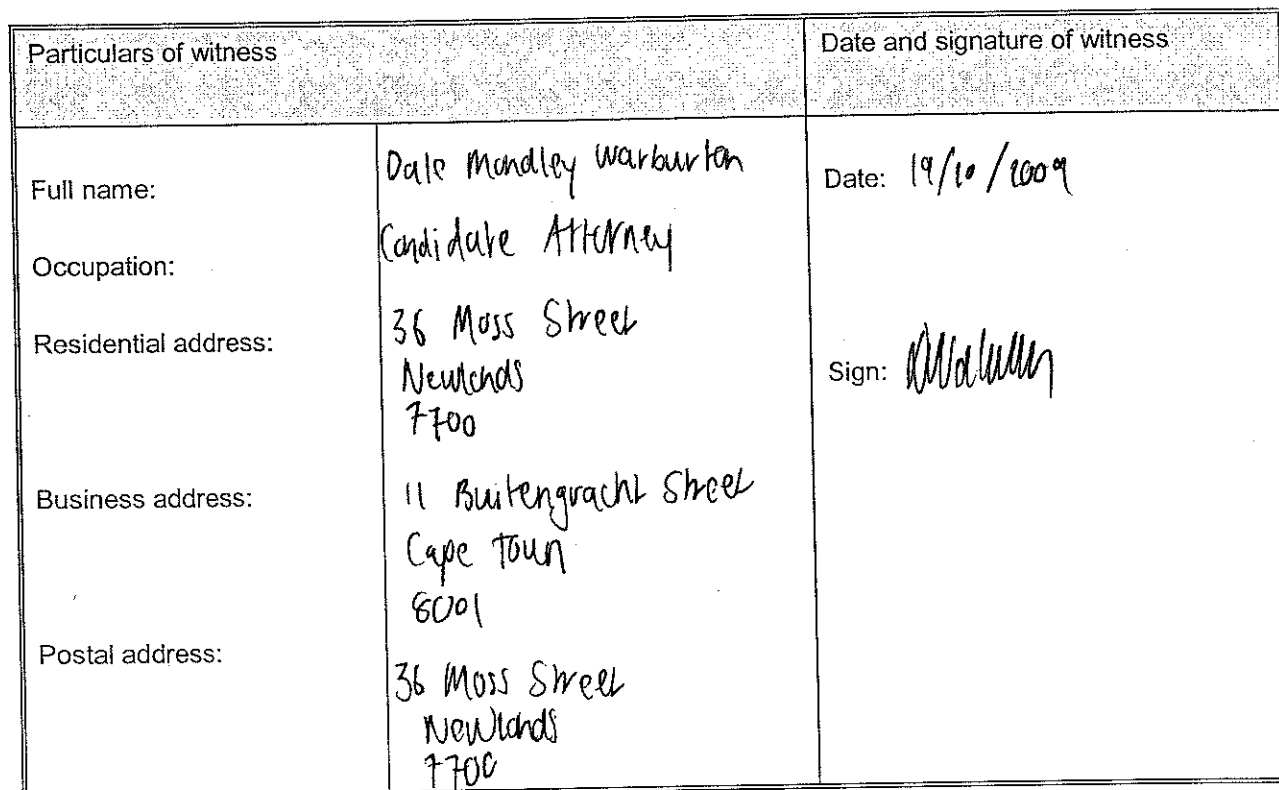 Particulars of witness
Date and signature of witness
Full name:
Dale Mondley Warburton
Date: 19/10/2009
Occupation:
Candidate Attorney
Residential address:
36 Moss Street
Newlands
7700
Sign:
Business address:
11 Buitengracht Street
Cape Town
8001
Postal address:
36 Moss Street
Newlands
7700